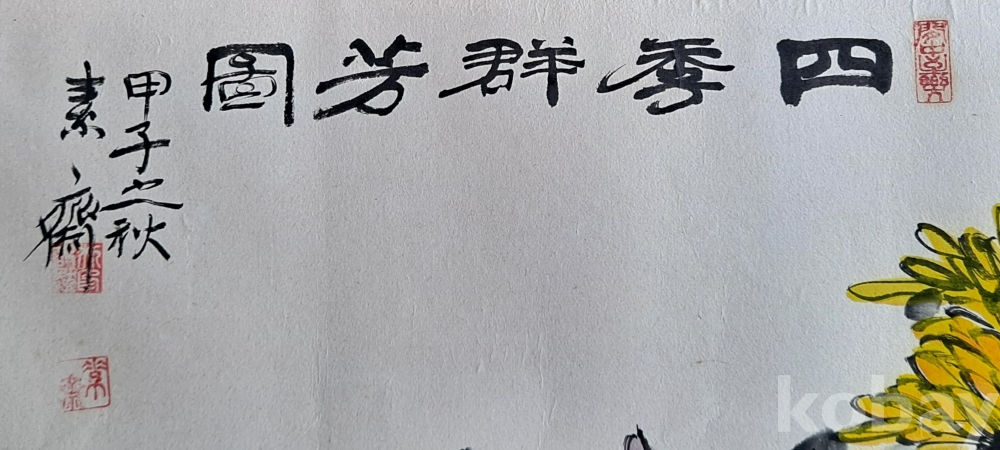 四季群芳圖
甲子之秋
素〻齋
kobay